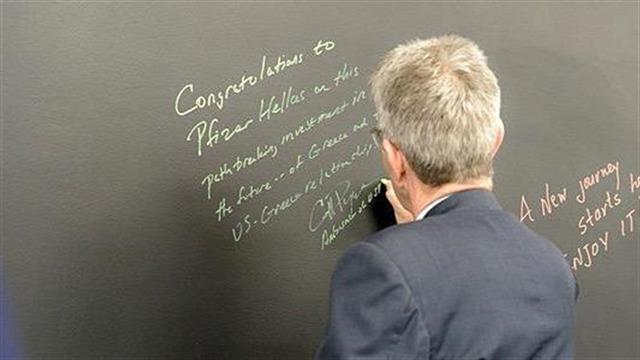 Congratulations to
Pfizer Hellas on this
pathbreaking investment in
the future -- of Greece and
US-Greece relationship
A New journey
starts he
ENJOY IT